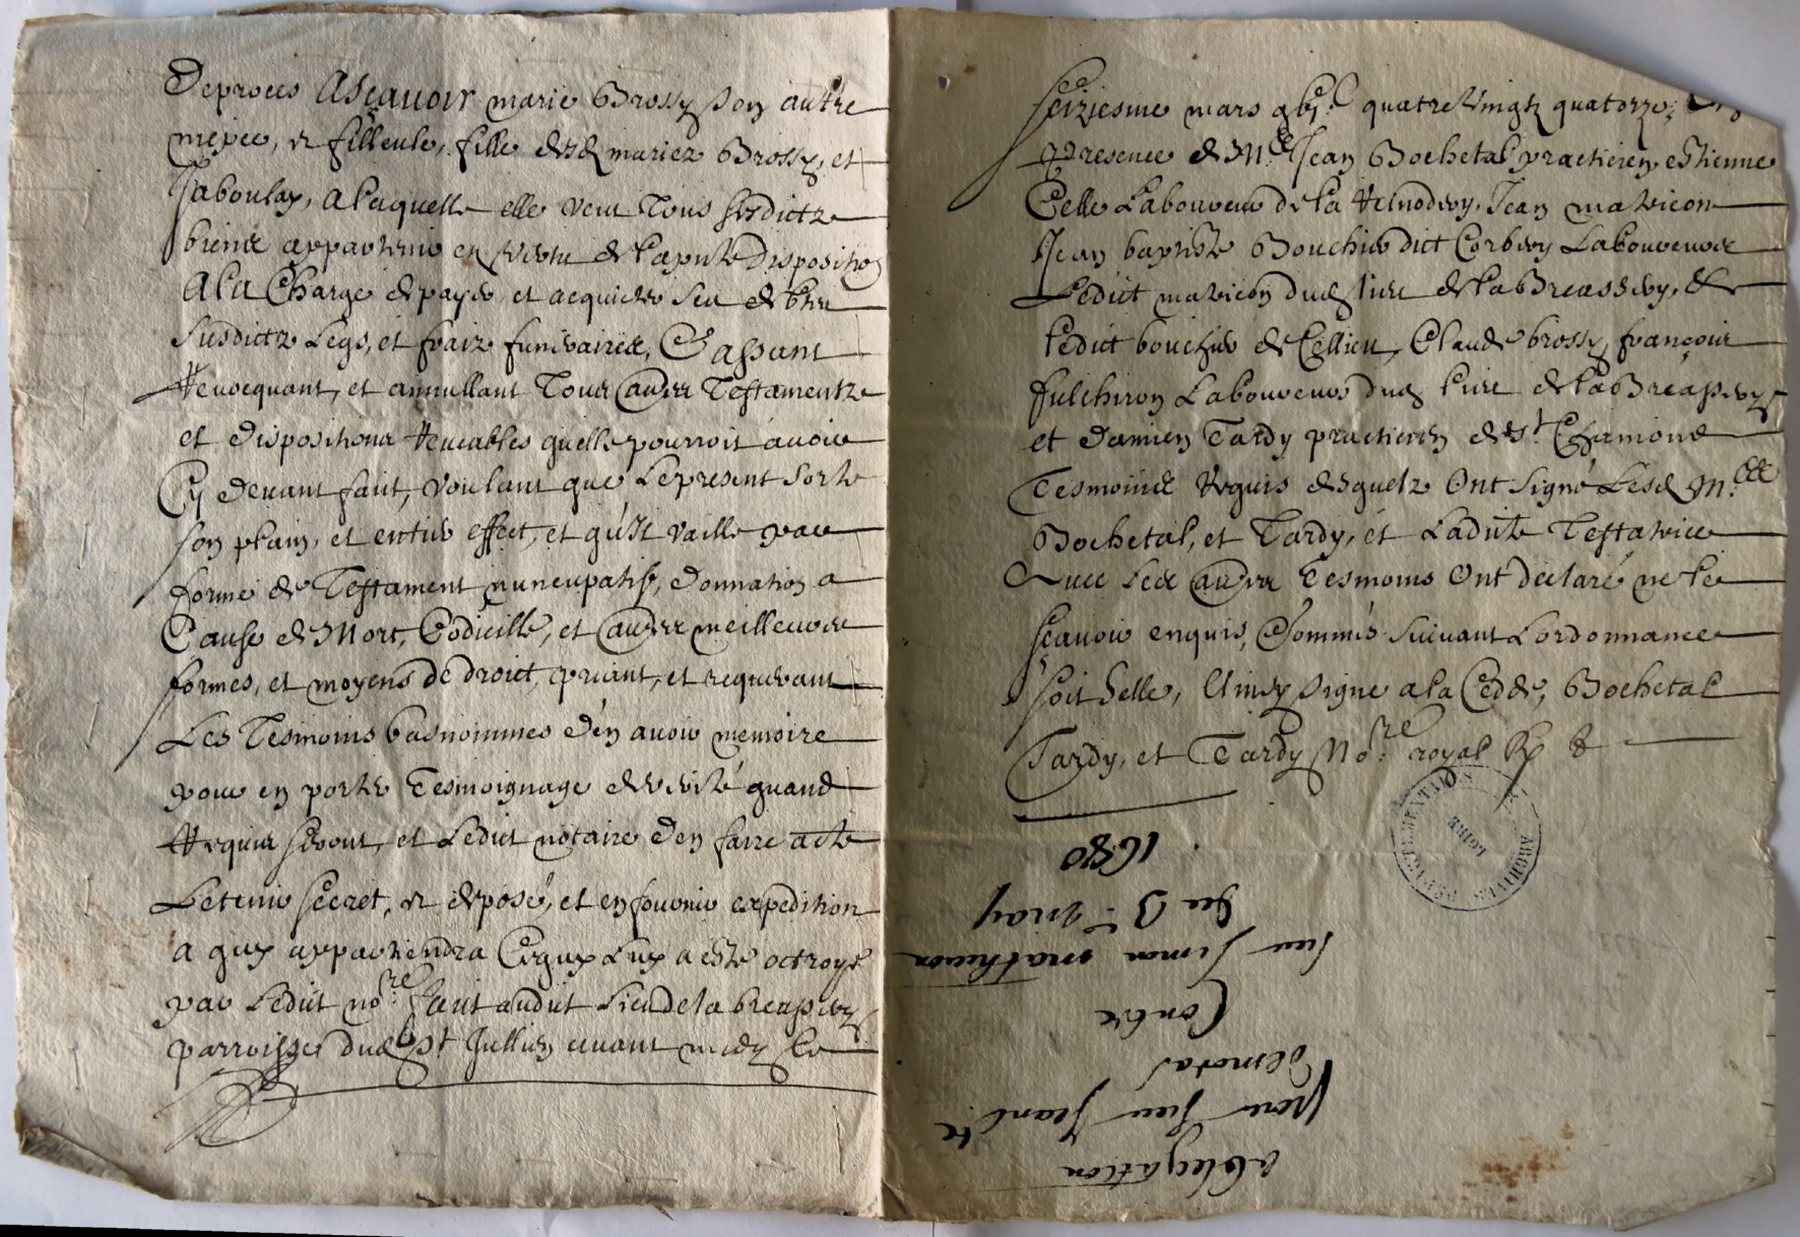 de proces Asçavoir marie Brossy son autre
niepce, et filleule, fille desd mariez Brossy, et
Jaboulay, a laquelle elle veut tous sesdictz
biens appartenir en vertu de lapnte disposition
A la Charge de payer et acquicter seu
susdictz Legs, et fraiz funeraires, Cassant
Revocquant, et annullant Tous autres Testamentz
et dispositions quelle pourroit avoir
Cy devant fait, voulant que Lepresent sorte
son plain, et entier effect, et qu'Il vaille par
forme de Testament nuncupatif, donnation a
Cause de Mort, Codicille, et autres meilleures
formes, et moyens de droict, priant, et requerant
Les Tesmoins basnommes d'en avoir memoire
pour en porter Tesmoignage de verité quand
Requis seront, et Ledict notaire d'en faire acte
Letenir secret, et deposé, et en fournir expedition
a quy appartiendra Cequy Luy a esté octroyé
par Ledict no.re fait audict Lieu dela breassery
parroisse dud St Jullien avant midy Le
seiziesme mars gbj.c quatre vingtz quatorze, En
presence de M.e Jean Bochetal practicien, estienne
Celle Laboureur de la Jean matricon
Jean baptiste Bouchier dict Corbery Laboureurs
Ledict matricon dud lieu de la Breassery, &
ledict bouchier de Cellieu, Claude brossy, françois
fulchiron Laboureurs dud lieu de la Breassery
et damien Tardy practicien de St Chamond
Tesmoins Requis desquelz Ont signé Lesd M.es
Bochetal, et Tardy, et Ladicte Testatrice
Avec Les autres Tesmoins Ont declaré ne le
sçavoir enquis, Et sommés suivant Lordonnance
soit Selle, Ainsy signé a la Cedde, Bochetal
Tardy, et Tardy No.re royal
ARCHIVES DEPARTEMENTALES
LOIRE
obligation
pour sieur Jean B.te
demoras
Contre
sieur Simon mathevon
du 3.e may
1680